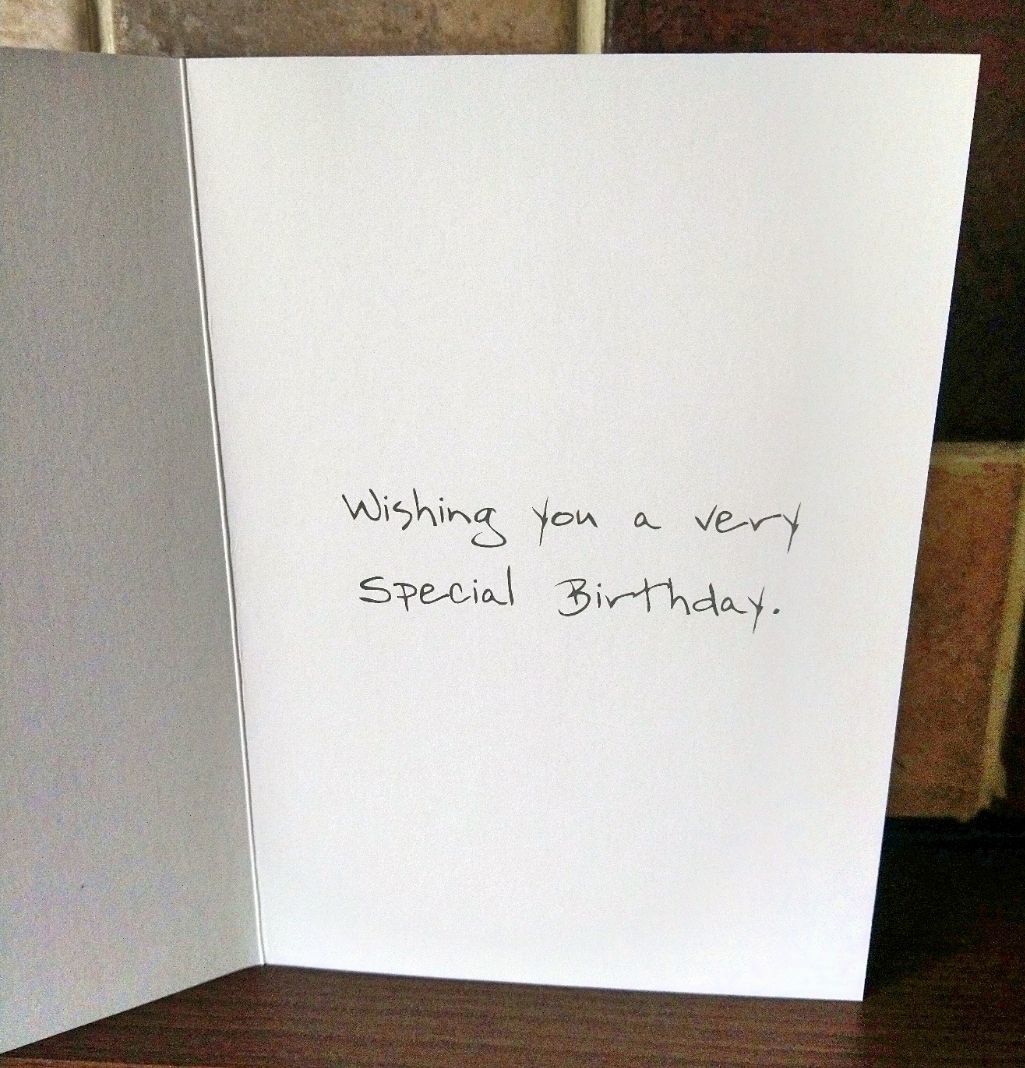 Wishing you a very
special Birthday.